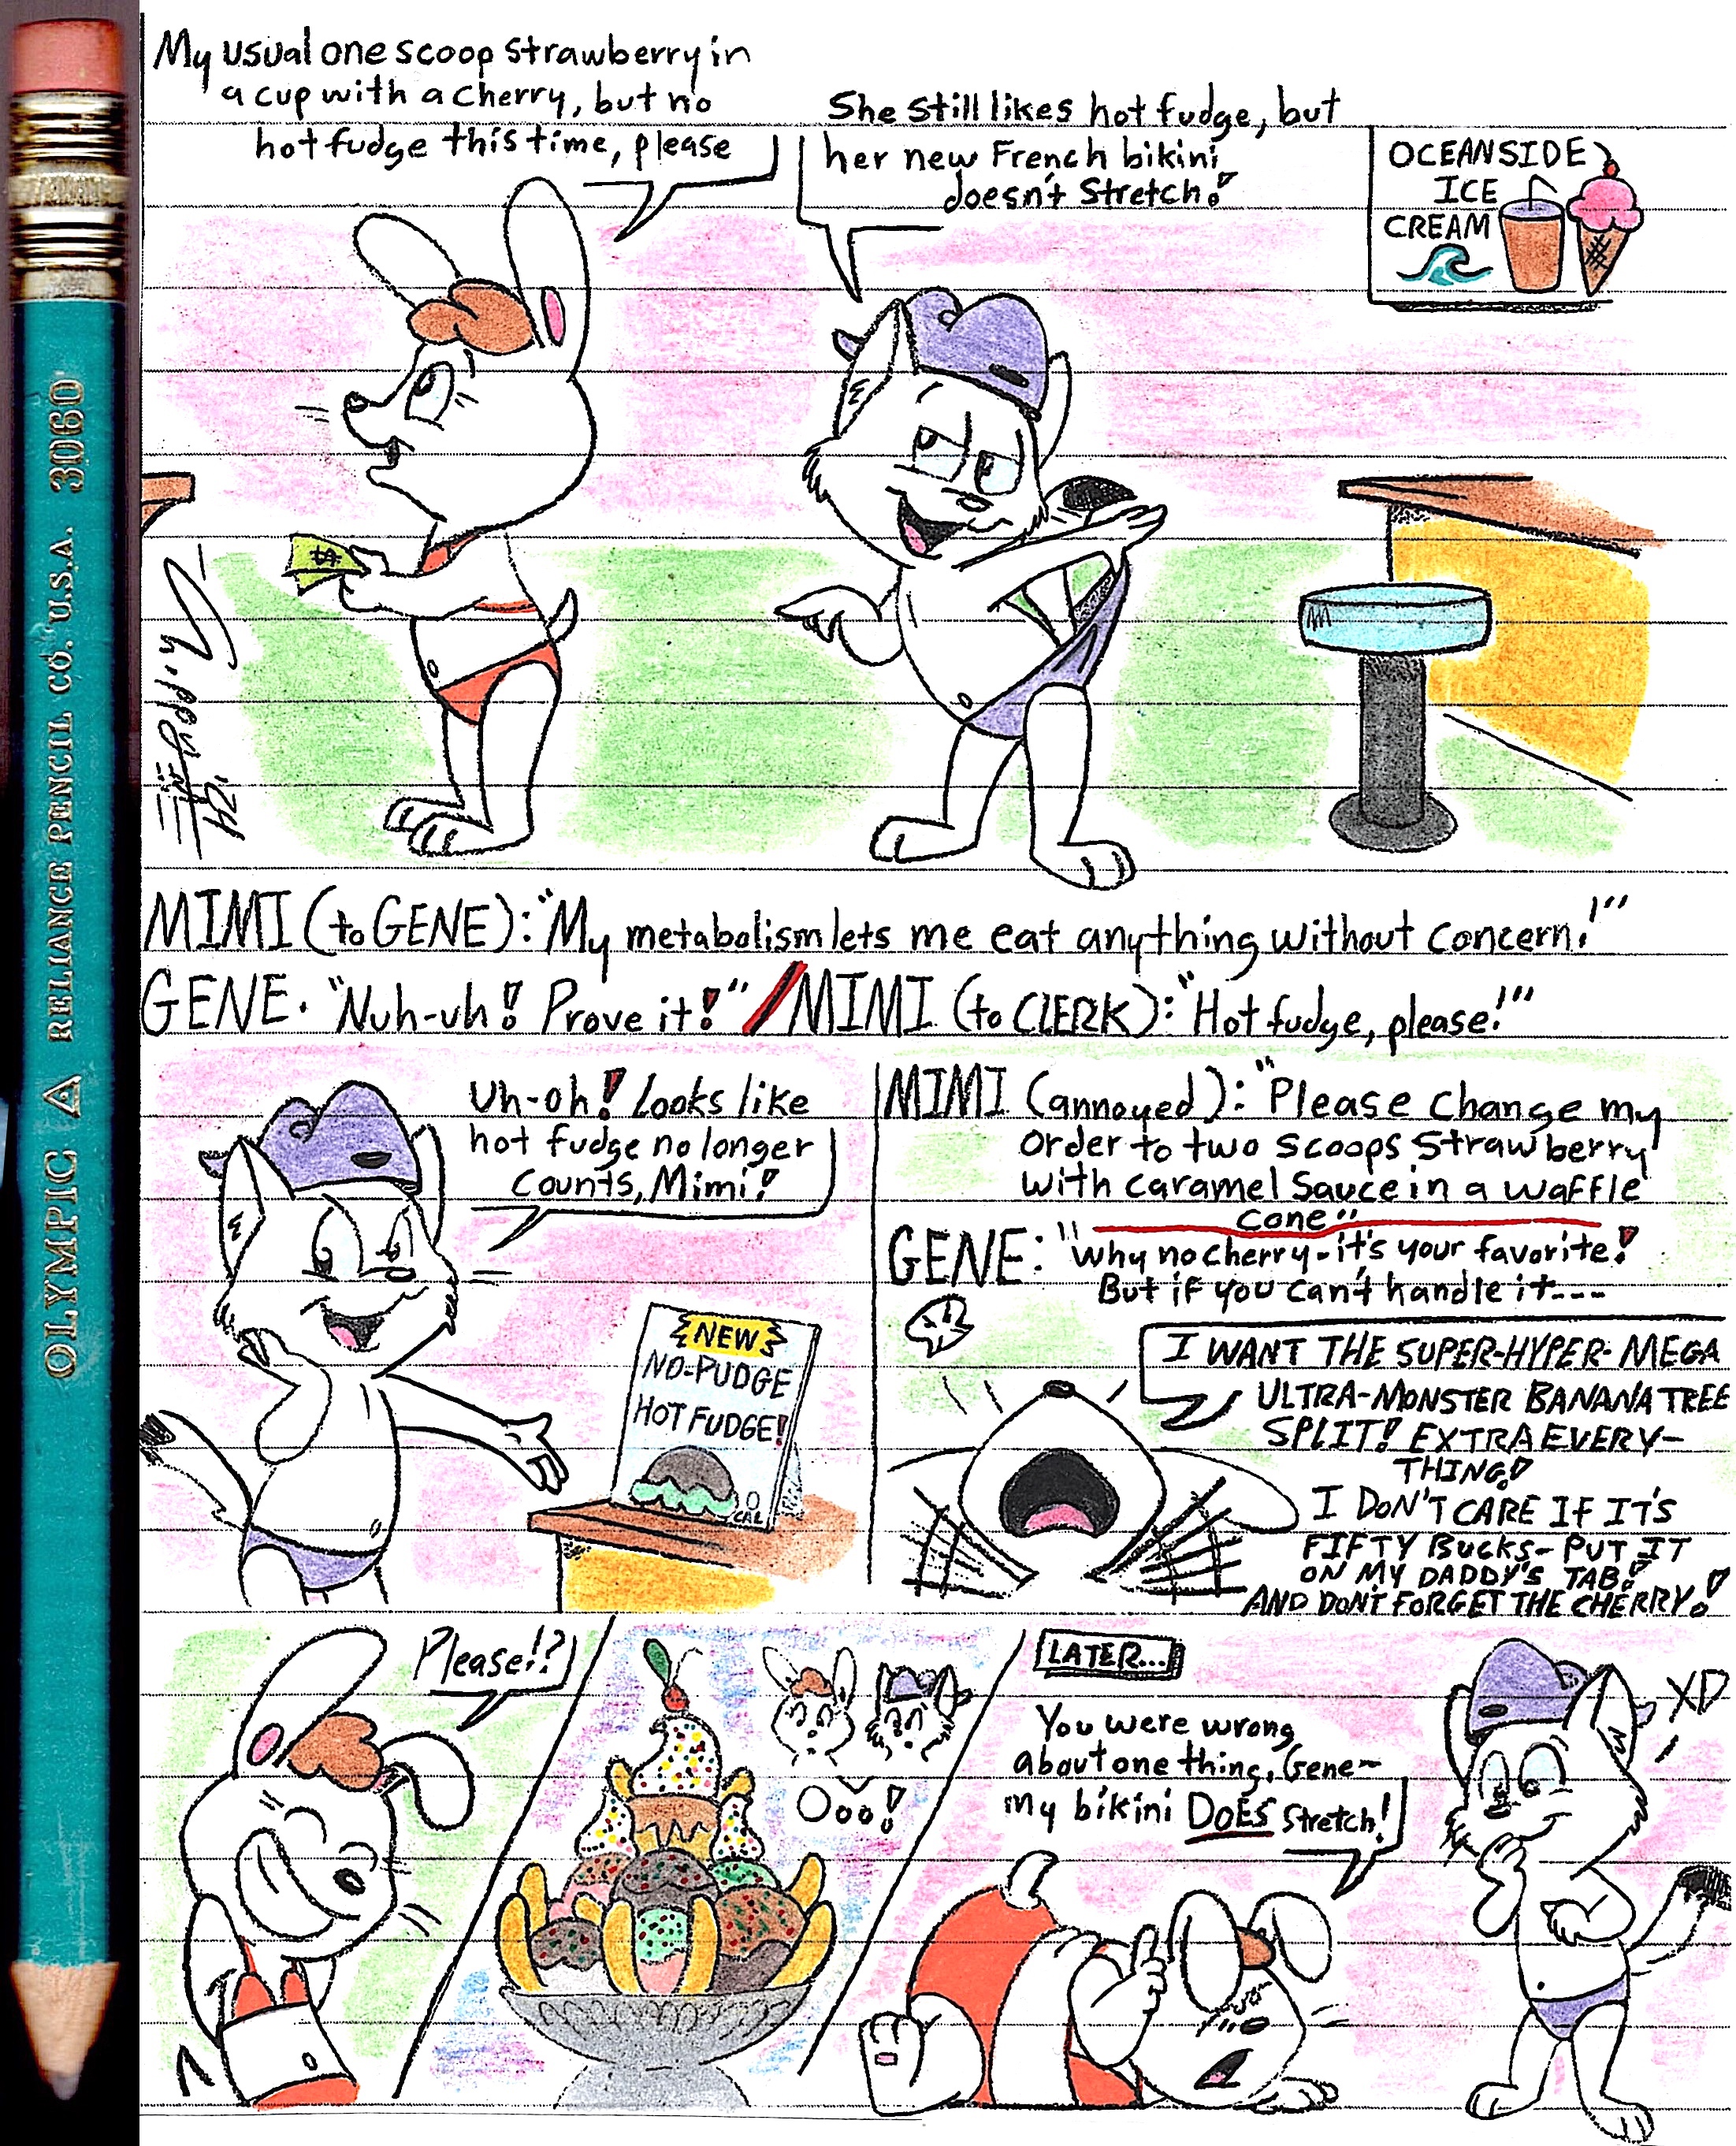 OLYMPIC RELIANCE PENCIL CO. U.S.A. 3060
My usual one scoop strawberry in
a cup with a cherry, but no
hot fudge this time, please
She still likes hot fudge, but
her new French bikini
doesn't stretch!
OCEANSIDE
ICE
CREAM
$
'24
MIMI (to GENE): "My metabolism lets me eat anything without concern!"
GENE. "Nuh-uh! Prove it!" / MIMI (to CLERK): "Hot fudge, please!"
Uh-oh! Looks like
hot fudge no longer
counts, Mimi!
NEW
NO-PUDGE
HOT FUDGE!
0
CAL
MIMI (annoyed): "Please change my
order to two scoops strawberry
with caramel sauce in a waffle
cone"
GENE: "Why no cherry - it's your favorite!
But if you can't handle it----
I WANT THE SUPER-HYPER-MEGA
ULTRA-MONSTER BANANA TREE
SPLIT! EXTRA EVERY-
THING!
I DON'T CARE IF IT'S
FIFTY BUCKS- PUT IT
ON MY DADDY'S TAB!
AND DON'T FORGET THE CHERRY!
Please!?
Ooo!
LATER...
You were wrong
about one thing, Gene-
my bikini DOES stretch!
XD